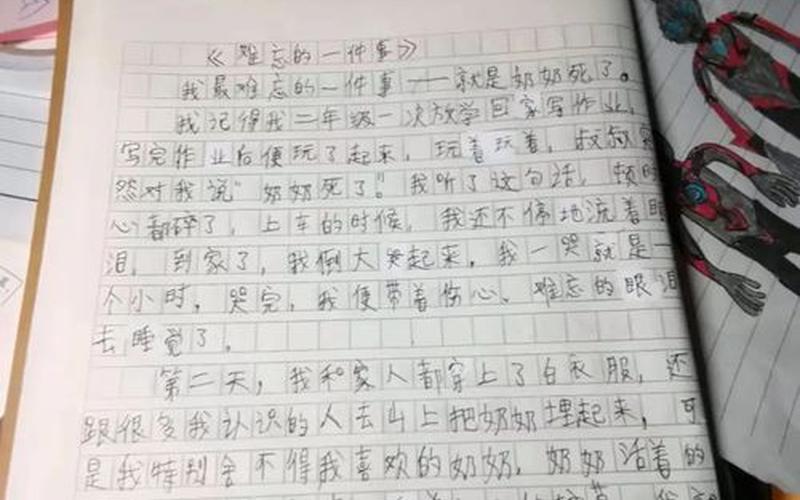 《难忘的一件事》
我最难忘的一件事——就是奶奶死了。
我记得我二年级一次放学回家写作业,
写完作业后便玩了起来,玩着玩着,叔叔突
然对我说"奶奶死了。"我听了这句话,顿时
心都碎了,上车的时候,我还不停地流着眼
泪,到家了,我倒大哭起来,我一哭就是一
个小时,哭完,我便带着伤心、难忘的眼泪
去睡觉了。
第二天,我和家人都穿上了白衣服,还
跟很多我认识的人去山上把奶奶埋起来,可
是我特别舍不得我喜欢的奶奶,奶奶活着的